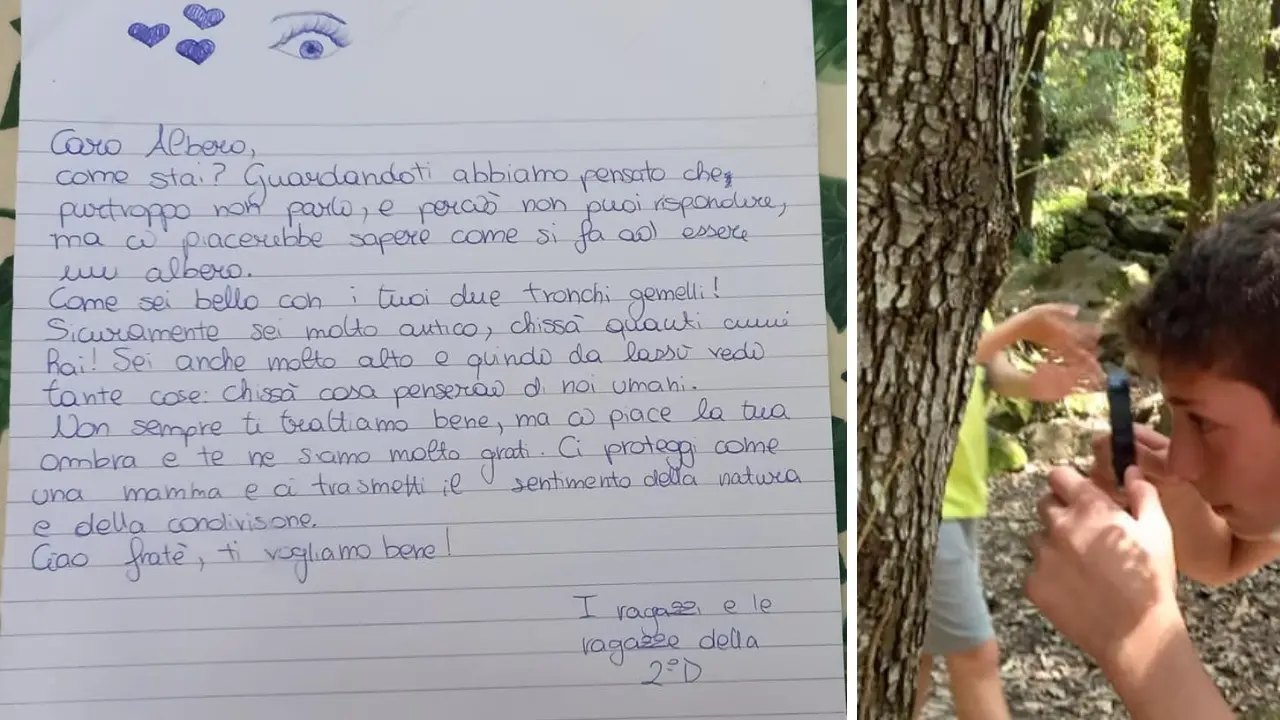 Caro Albero,
come stai? Guardandoti abbiamo pensato che,
purtroppo non parli, e perciò non puoi rispondere,
ma ci piacerebbe sapere come si fa ad essere
un albero.
Come sei bello con i tuoi due tronchi gemelli!
Sicuramente sei molto antico, chissà quanti anni
hai! Sei anche molto alto e quindi da lassù vedi
tante cose: chissà cosa penserai di noi umani.
Non sempre ti trattiamo bene, ma ci piace la tua
ombra e te ne siamo molto grati. Ci proteggi come
una mamma e ci trasmetti il sentimento della natura
e della condivisone.
Ciao fratè, ti vogliamo bene!
I ragazzi e le
ragazze della
2°D